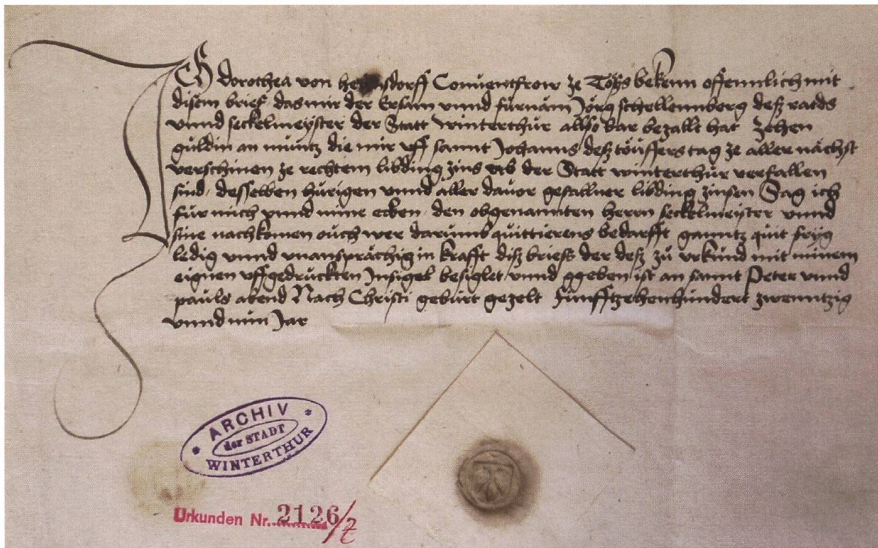 Ich dorothea von he[...]sdorff Conventfrow ze Töss bekenn offennlich mit
disem brief das mir der Ersam unnd fürnäm Jörg schellennberg dess radds
unnd seckelmeyster der Statt winterthur allso bar bezallt hat zehen
guldin an müntz die mir uff sannt Johanns dess töuffers tag ze aller nächst
verschinen ze rechtem libding zins vab der Statt winterthur verfallen
sind, desselben hürigen unnd aller davor gefallner libding zinsen Sag ich
für mich unnd mine erben, den obgenannten herrn seckelmeyster unnd
sine nachkomen ouch wer darumb quittierens bedarfft ganntz quit fryg
ledig unnd unansprächig in krafft diss briefs der dess zu urkünd mit minem
eignen uffgedruckten Insigel besiglet unnd ggeben ist an sannt Peter unnd
pauls abend Nach Christi gebürt gezelt Fünfftzehenhündert zwenntzig
unnd nün Jar
ARCHIV
der STADT
WINTERTHUR
Urkunden Nr. 2126/z